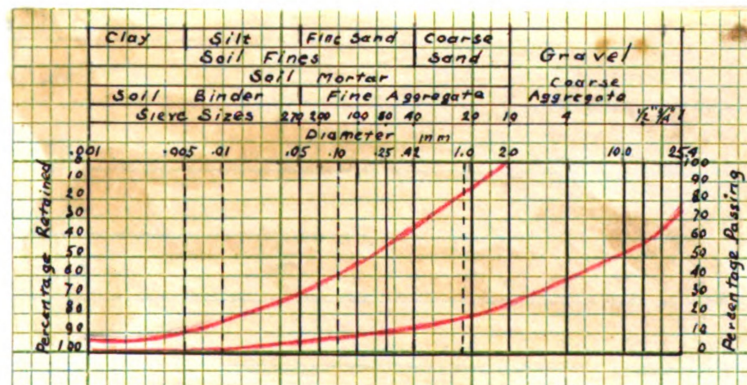 Clay Silt Fine Sand Coarse Sand Gravel
Soil Fines
Soil Mortar Coarse Aggregate
Soil Binder Fine Aggregate
Sieve Sizes 270 200 100 60 40 20 10 4 1/2" 3/4" 1
Diameter mm
.001 .005 .01 .05 .10 .25 .42 1.0 2.0 10.0 25.4
Percentage Retained
0
10
20
30
40
50
60
70
80
90
100
Percentage Passing
100
90
80
70
60
50
40
30
20
10
0